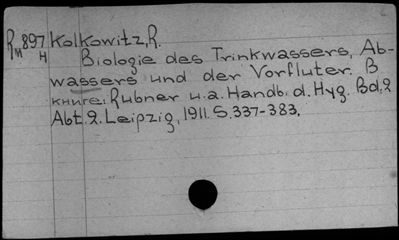 Rm 897 Kolkowitz, R.
H Biologie des Trinkwassers, Ab-
wassers und der Vorfluter. В
книге: Rubner u.a. Handb. d. Hyg. Bd. 2
Abt. 2. Leipzig, 1911. S. 337-383.